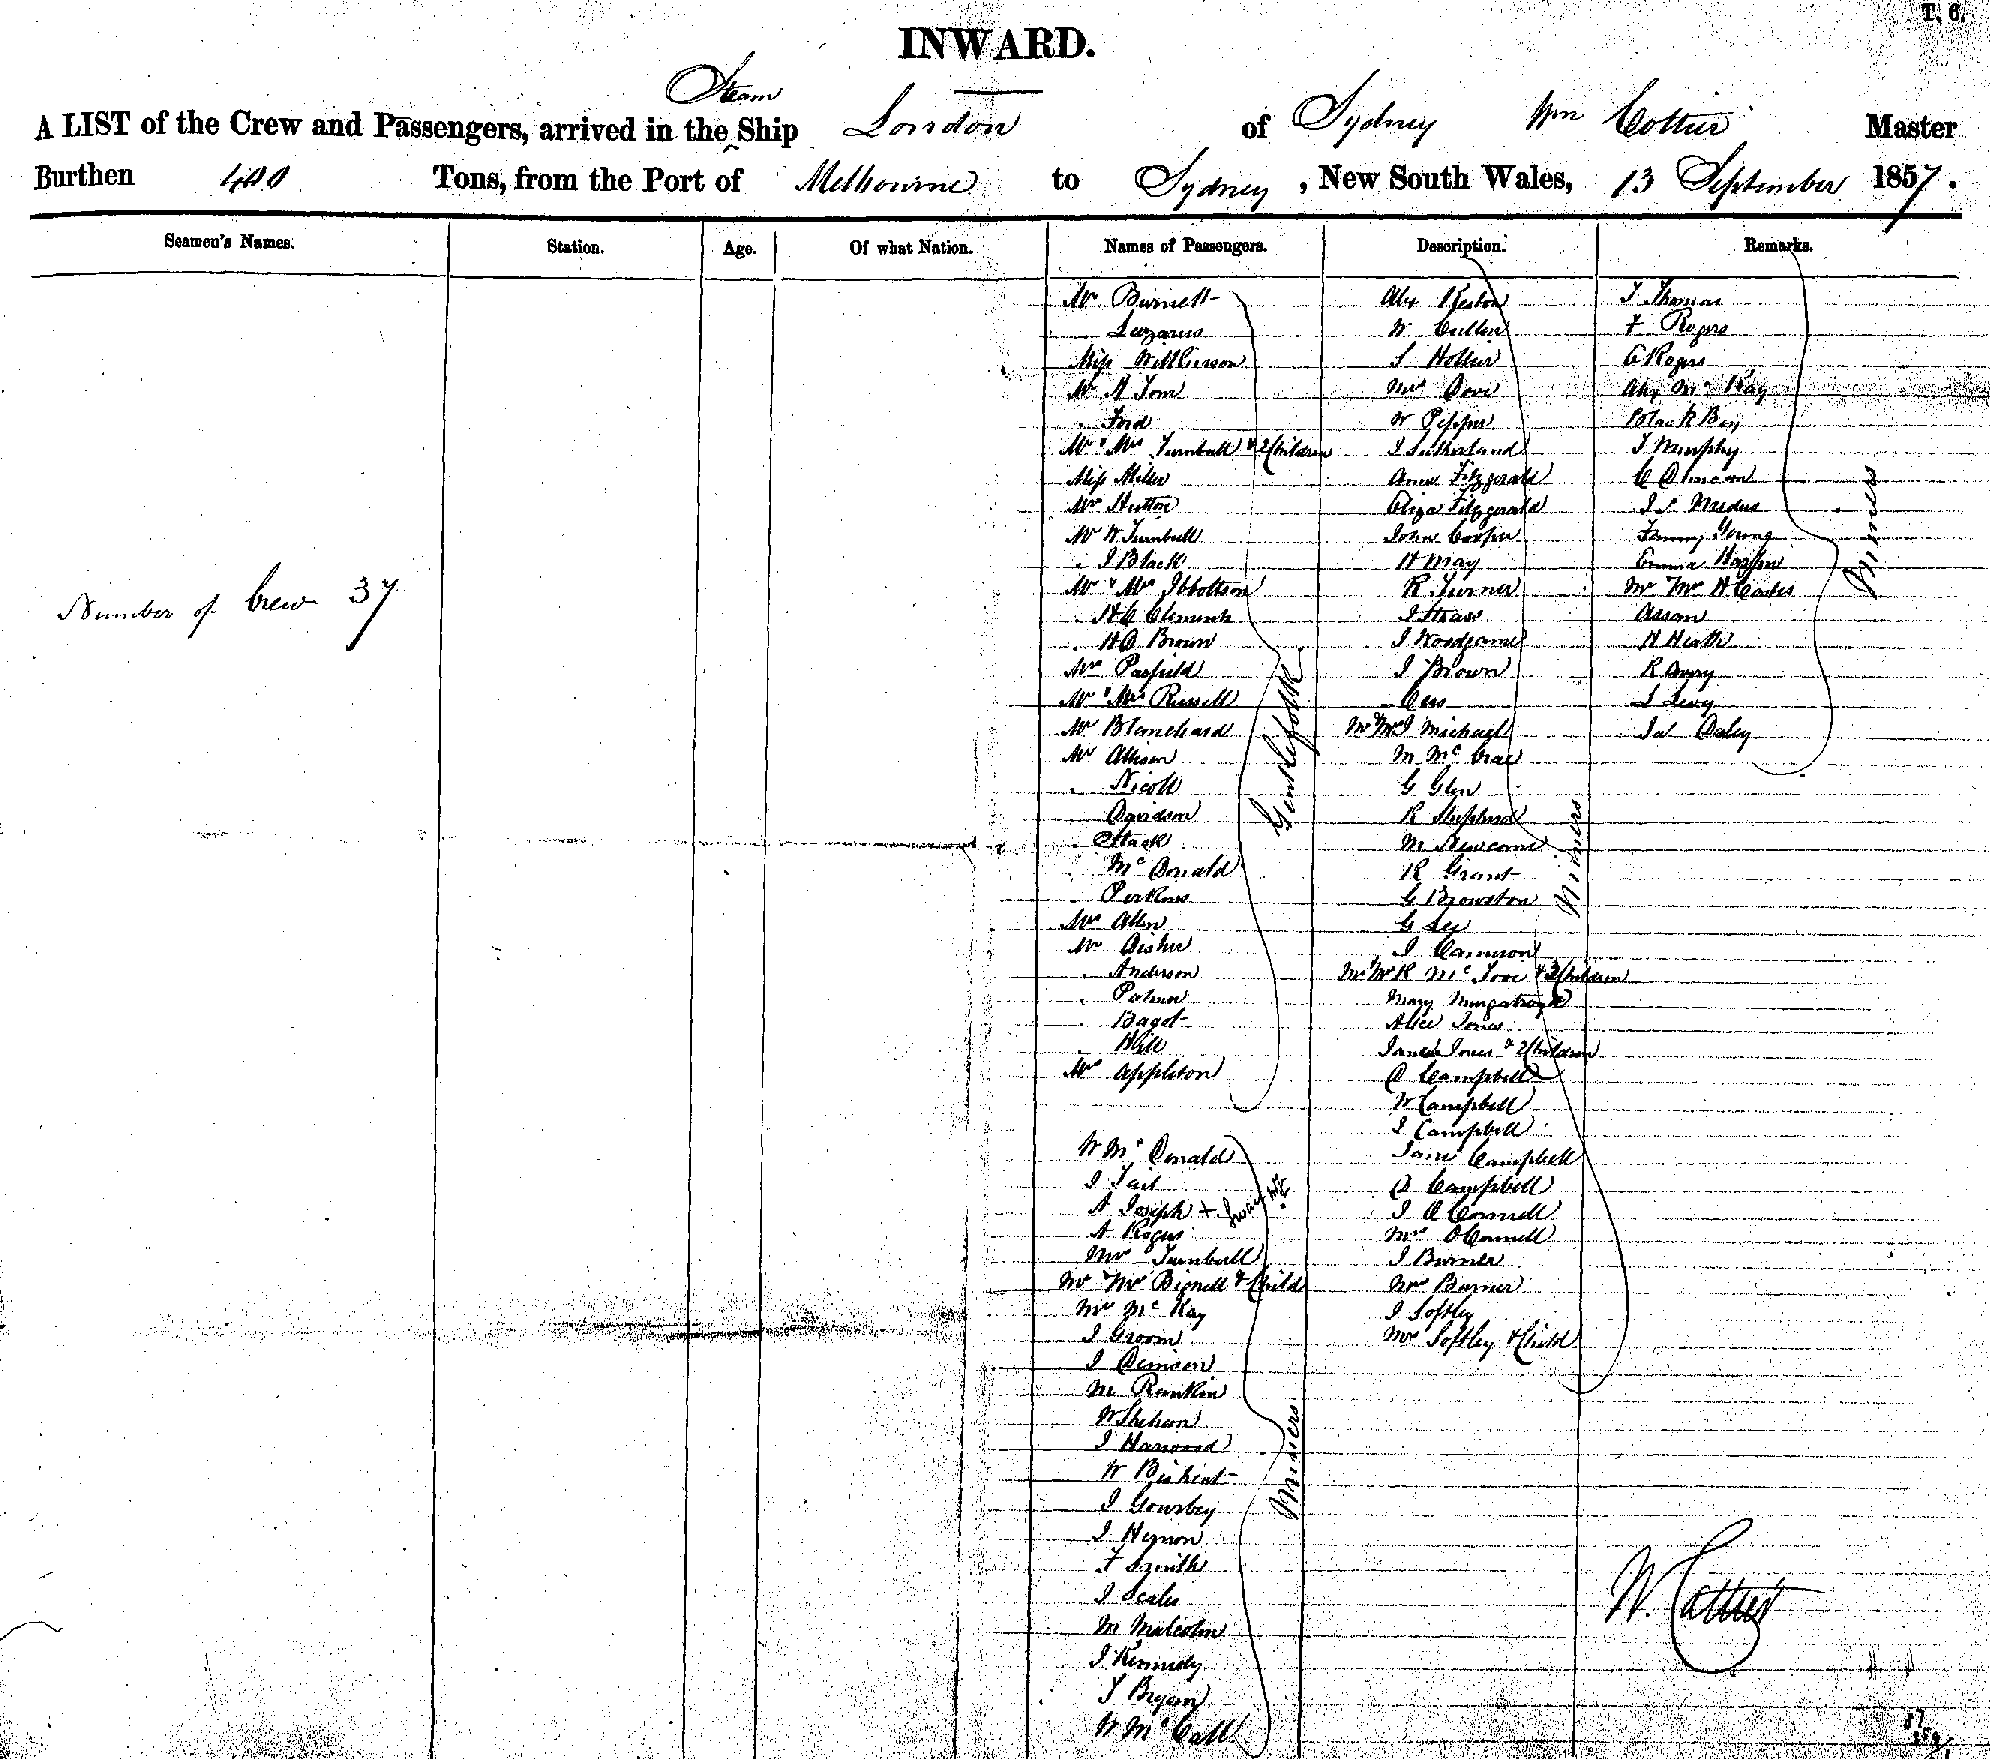 T. 6.
INWARD.
Steam
A LIST of the Crew and Passengers, arrived in the Ship London of Sydney Wm Cottier Master
Burthen 400 Tons, from the Port of Melbourne to Sydney, New South Wales, 13 September 1857.
Seamen's Names. Station. Age. Of what Nation. Names of Passengers. Description. Remarks.
Number of Crew 37
Mr Burnett
Lazarus
Miss Wilkinson
Mr A Tom
Ford
Mr & Mrs Turnbull & 2 Children
Miss Miller
Mr Hutton
Mr W Turnbull
J Black
Mr & Mrs Ibbottson
H C Clements
H A Brown
Mrs Pasfield
Mr & Mrs Russell
Mr Blanchard
Mr Allison
Nicoll
Davidson
Stack
McDonald
Perkins
Mrs Allen
Mr Disher
Anderson
Palmer
Bagot
Hill
Mr Appleton
Gentlefolk
W McDonald
J Tait
A Joseph +
A Rogers
Mrs Turnbull
Mr & Mrs Bignell & Child
Mrs McKay
J Groom
J Denison
M Rankin
W Shehan
J Harwood
W
J Gowsbey
J Hernon
F Smith
J Scales
M Malcolm
J Kennedy
J Bryan
W McCall
Miners
Alex
W Cullen
S Hollier
Mrs Dove
W Pepper
J Sutherland
Anne Fitzgerald
Eliza Fitzgerald
John Cooper
H May
R Turner
J Straw
J
J Brown
Mr & Mrs J Michael
M McCrae
G Glen
R Shepherd
M Newcome
R Grant
G Browston
G Lee
J Cameron
Mr & Mrs R & 3 Children
Mary Murgatroyd
Alice Jones
Jane Jones & 2 Children
D Campbell
W Campbell
J Campbell
Jane Campbell
D Campbell
J O Connell
Mrs O Connell
J Burner
Mrs Burner
J Softley
Mrs Softley & Child
Miners
J Thomas
F Rogers
C Rogers
Alex McKay
Black Boy
J Murphy
C Duncan
J S Medus
Fanny Young
Emma
Mr & Mrs H Eades
Assan
H Heath
R Avery
L Levy
Jas Daley
Miners
W. Cottier